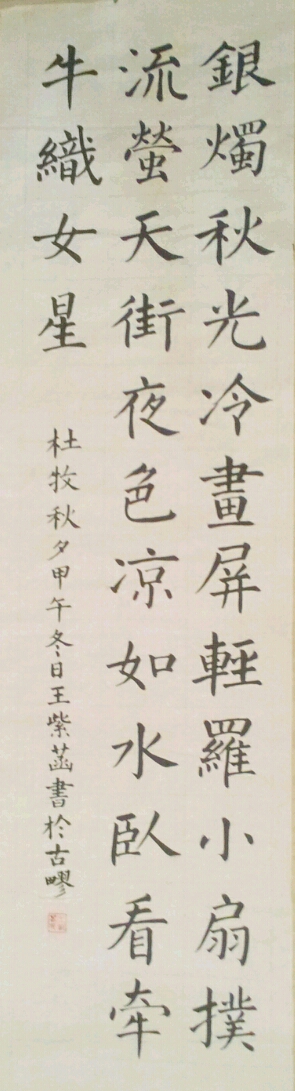 銀燭秋光冷畫屏輕羅小扇撲
流螢天街夜色凉如水臥看牽
牛織女星
杜牧秋夕甲午冬日王紫菡書於古疁